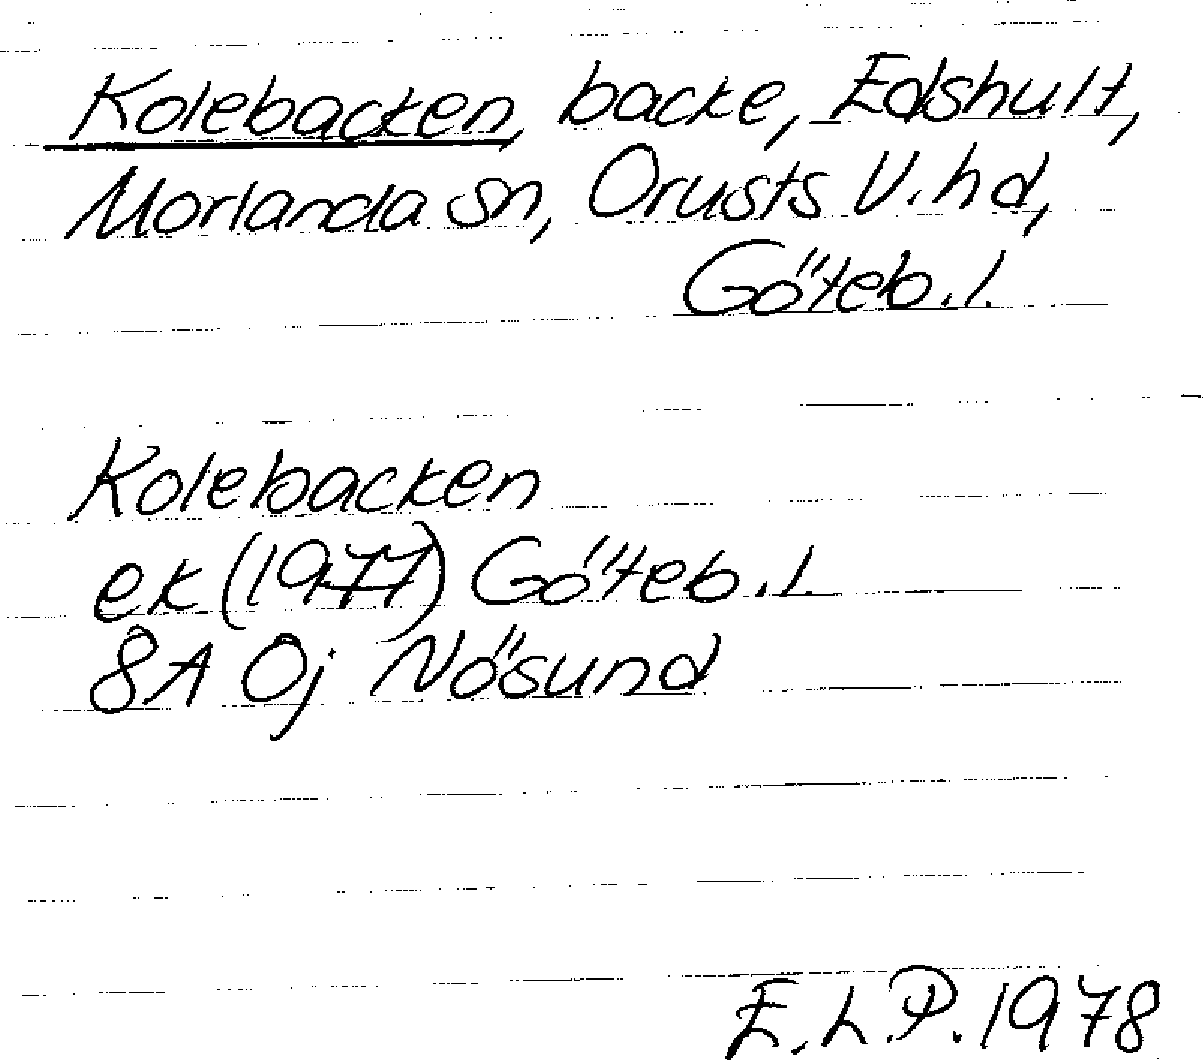 Kolebacken, backe, Edshult,
Morlanda sn, Orusts V. hd,
Göteb. l.
Kolebacken
ek (1977) Göteb. l.
8A 0j Nösund
E. L. P. 1978